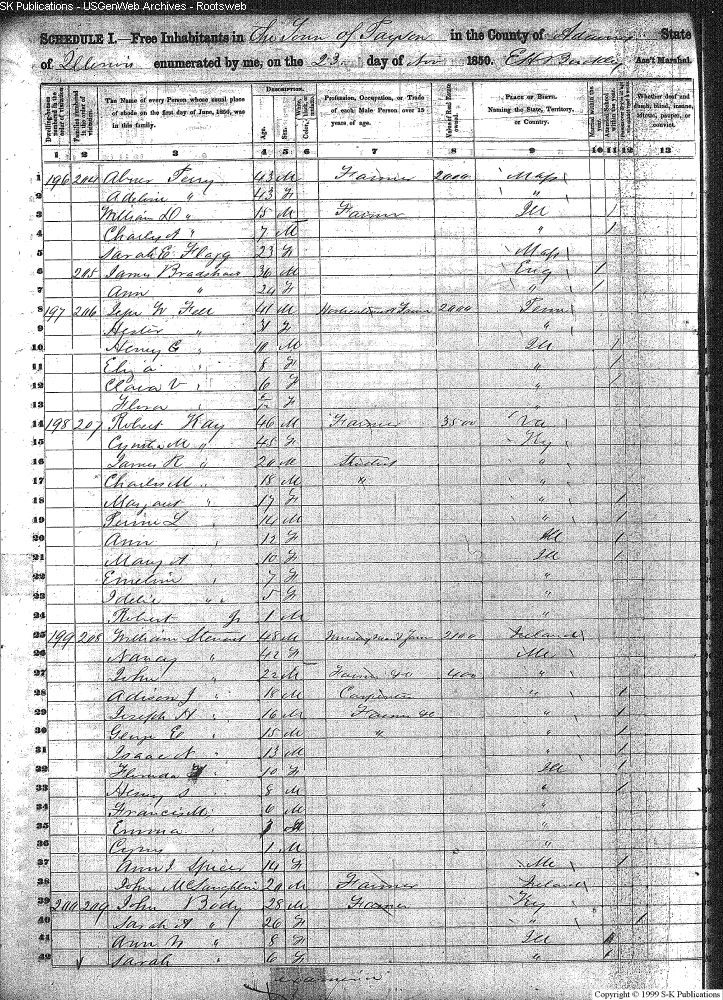 SK Publications - USGenWeb Archives - Rootsweb
SCHEDULE I.—Free Inhabitants in The Town of Payson in the County of Adams State
of Illinois enumerated by me, on the 23 day of Nov 1850. Ass't Marshal.
DESCRIPTION.
The Name of every Person whose usual place of abode on the first day of June, 1850, was in this family.
Age.
Sex.
Profession, Occupation, or Trade of each Male Person over 15 years of age.
Value of Real Estate owned.
PLACE OF BIRTH. Naming the State, Territory, or Country.
Whether deaf and dumb, blind, insane, idiotic, pauper, or convict.
1 2 3 4 5 6 7 8 9 10 11 12 13
1 196 204 Abner Perry 43 M Farmer 2000 Mass
2 Adeline " 43 F "
3 William D " 15 M Farmer Ill 1
4 Charles A " 7 M " 1
5 Sarah E Flagg 23 F Mass
6 205 James Bradshaw 36 M Eng 1
7 Ann " 24 F " 1
8 197 206 W Fell 41 M 2000 Tenn
9 Hester " F "
10 Henry C " 10 M Ill 1
11 Eliza " 8 F " 1
12 Clara V " 6 F " 1
13 Flora " F "
14 198 207 Robert Kay 46 M Farmer 3500 Va
15 Cynthia M " 45 F Ky
16 James R " 20 M Student "
17 Charles M " 18 M " "
18 Margaret " 17 F " 1
19 L " 14 M " 1
20 Ann " 12 F Ill 1
21 Mary A " 10 F Ill 1
22 Emeline " 7 F "
23 Idelia " 5 F "
24 Robert Jr 1 M "
25 199 208 William Stewart 48 M 2100 Ireland
26 Nancy " 42 F Me
27 John " 22 M Farmer &c 400 "
28 Adison J " 18 M Carpenter " 1
29 Joseph H " 16 M Farmer &c " 1
30 George E " 15 M " " 1
31 Isaac N " 13 M " 1
32 Florinda " 10 F Ill 1
33 Henry S " 8 M " 1
34 Francis M " 6 M "
35 Emma " 3 "
36 Cyrus " 1 M "
37 Ann J Spicer 14 F Me 1
38 John McLaughlin 20 M Farmer Ireland
39 200 209 John Body 28 M Farmer Ky
40 Sarah A " 26 F " 1
41 Ann " 8 F Ill
42 Sarah " 6 F "
Copyright © 1999 S-K Publications